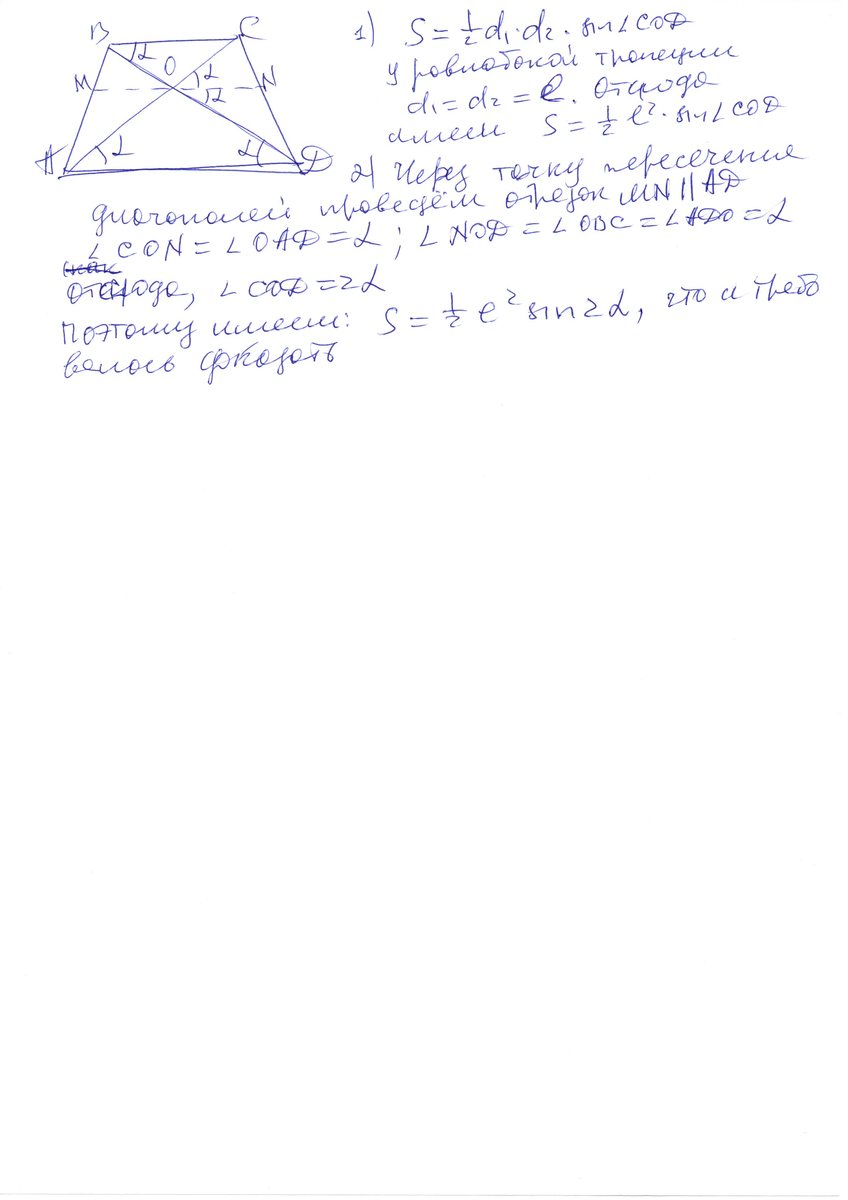 B C
O
M N
A D
α α α α α
1) S = ½ d₁ · d₂ · sin∠COD
У равнобокой трапеции
d₁ = d₂ = ℓ. Отсюда
имеем S = ½ ℓ² · sin∠COD
2) Через точку пересечения
диагоналей проведём отрезок MN || AD
∠CON = ∠OAD = α; ∠NOD = ∠OBC = ∠ADO = α
Отсюда, ∠COD = 2α
Поэтому имеем: S = ½ ℓ² sin 2α, что и требо
валось доказать